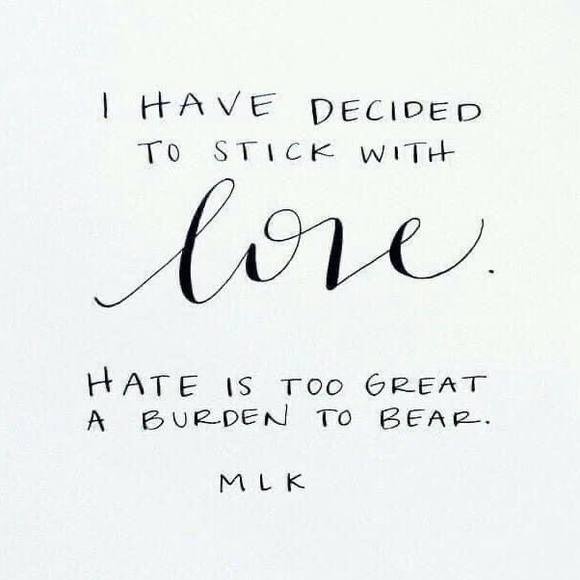 I HAVE DECIDED
TO STICK WITH
love.
HATE IS TOO GREAT
A BURDEN TO BEAR.
MLK